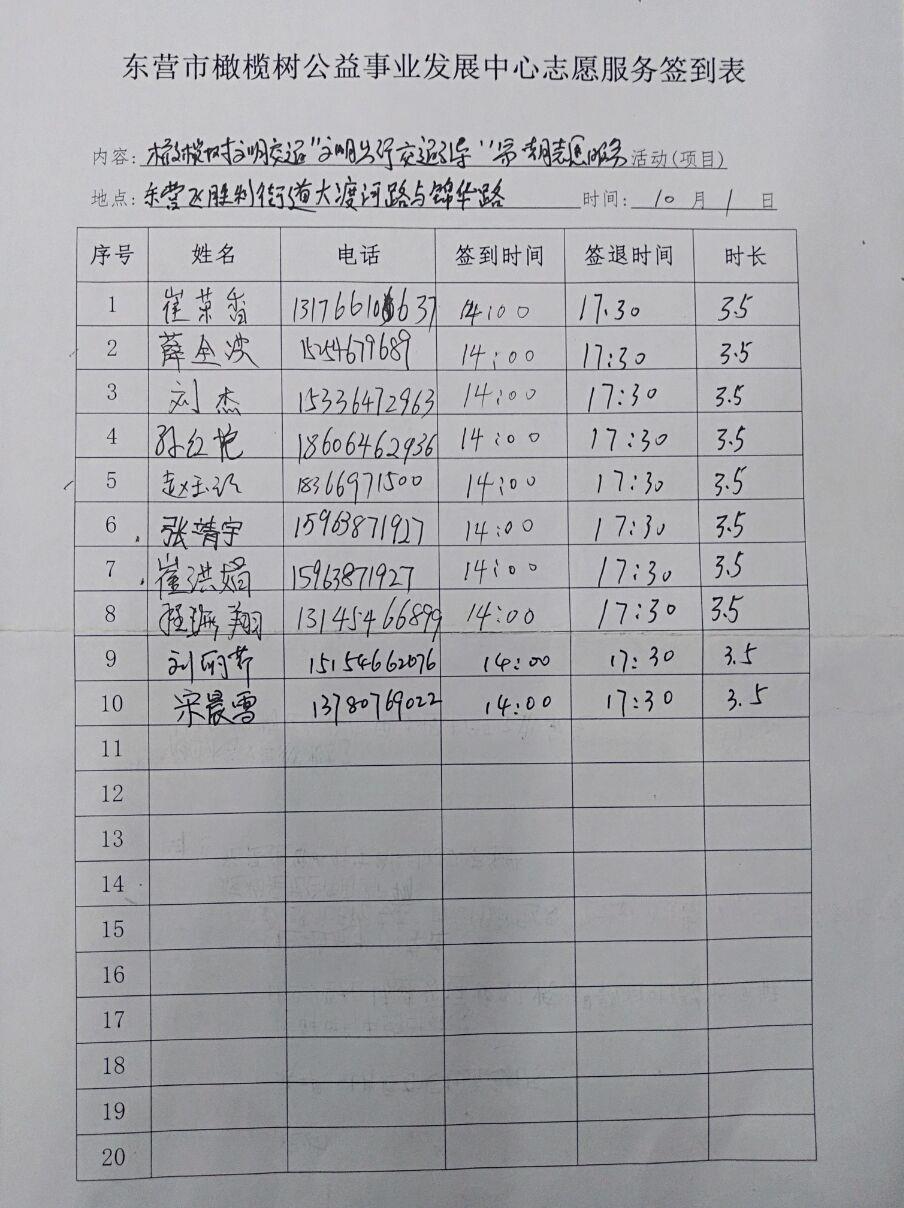 东营市橄榄树公益事业发展中心志愿服务签到表
内容: 橄榄树文明交运"文明出行交运引导" 志愿服务 活动(项目)
地点: 东营区胜利街道大渡河路与锦华路 时间: 10 月 1 日
序号 姓名 电话 签到时间 签退时间 时长
1 崔荣香 13176610637 14:00 17:30 3.5
2 薛全波 15254679689 14:00 17:30 3.5
3 刘杰 15336472963 14:00 17:30 3.5
4 孙红艳 18606462936 14:00 17:30 3.5
5 赵玉 18366971500 14:00 17:30 3.5
6 张靖宇 15963871927 14:00 17:30 3.5
7 崔洪娟 15963871927 14:00 17:30 3.5
8 程翔 13145466899 14:00 17:30 3.5
9 刘丽 15154662076 14:00 17:30 3.5
10 宋晨雪 13780769022 14:00 17:30 3.5
11
12
13
14
15
16
17
18
19
20